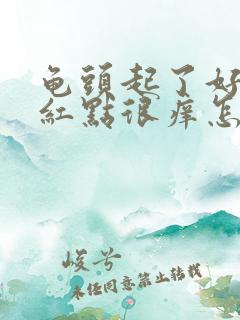 龟頭起了好
紅點很痒怎
峻兮
未经同意禁止转载